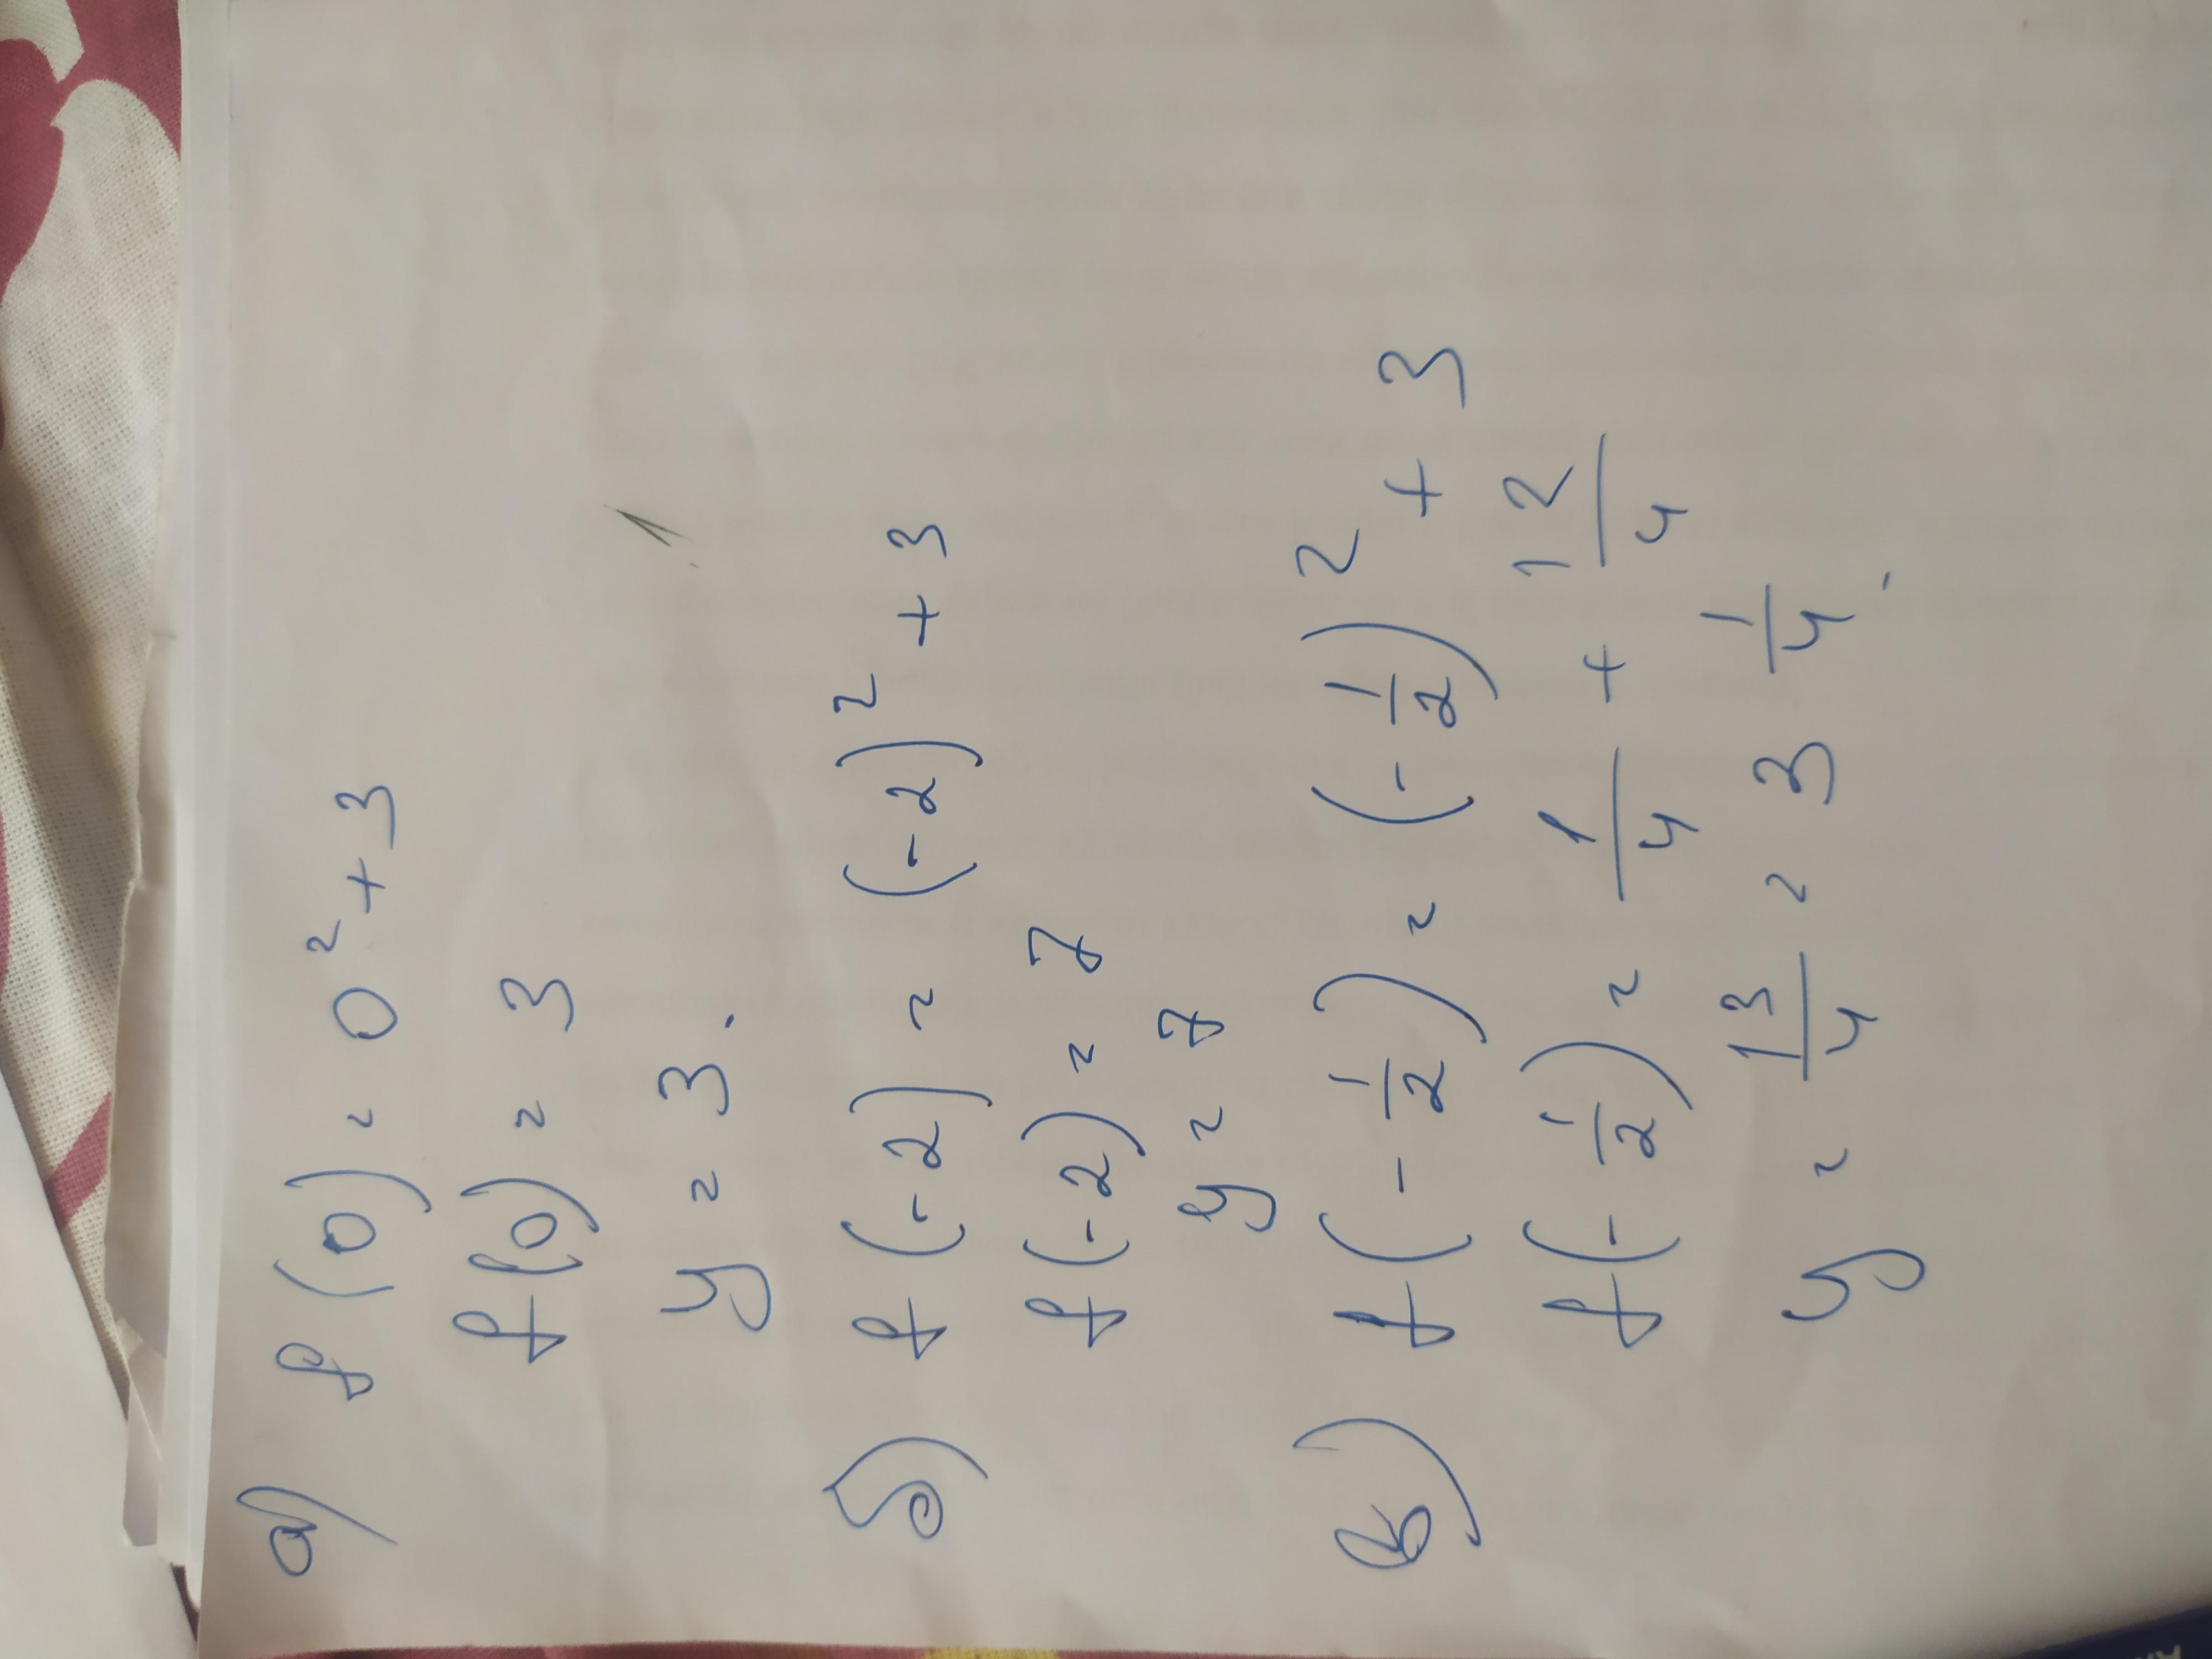 a) f(0) = 0² + 3
f(0) = 3
y = 3.
б) f(-2) = (-2)² + 3
f(-2) = 7
y = 7
в) f(-1/2) = (-1/2)² + 3
f(-1/2) = 1/4 + 12/4
y = 13/4 = 3 1/4.